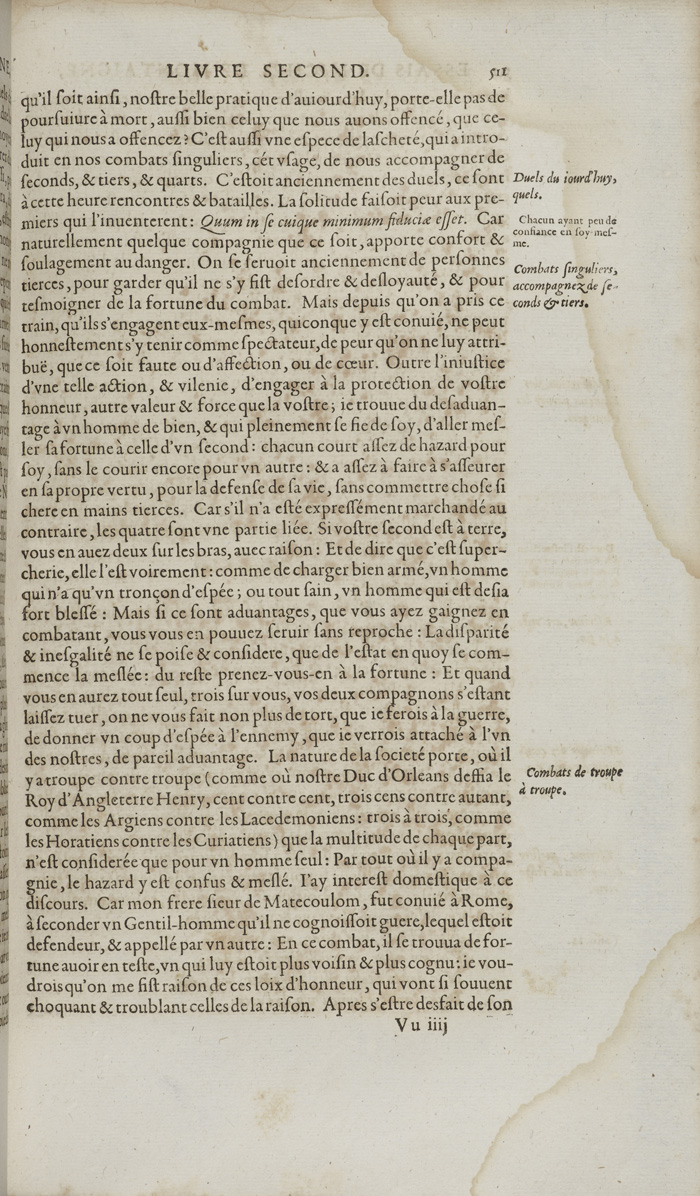 LIVRE SECOND. 511
qu'il ſoit ainſi, noſtre belle pratique d'auiourd'huy, porte-elle pas de
pourſuiure à mort, auſſi bien celuy que nous auons offencé, que ce-
luy qui nous a offencez? C'eſt auſſi vne eſpece de laſcheté, qui a intro-
duit en nos combats ſinguliers, cét vſage, de nous accompagner de
ſeconds, & tiers, & quarts. C'eſtoit anciennement des duels, ce ſont
à cette heure rencontres & batailles. La ſolitude faiſoit peur aux pre-
miers qui l'inuenterent: Quum in ſe cuique minimum fiduciæ eſſet. Car
naturellement quelque compagnie que ce ſoit, apporte confort &
ſoulagement au danger. On ſe ſeruoit anciennement de perſonnes
tierces, pour garder qu'il ne s'y fiſt deſordre & deſloyauté, & pour
teſmoigner de la fortune du combat. Mais depuis qu'on a pris ce
train, qu'ils s'engagent eux-meſmes, quiconque y eſt conuié, ne peut
honneſtement s'y tenir comme ſpectateur, de peur qu'on ne luy attri-
buë, que ce ſoit faute ou d'affection, ou de cœur. Outre l'iniuſtice
d'vne telle action, & vilenie, d'engager à la protection de voſtre
honneur, autre valeur & force que la voſtre; ie trouue du deſaduan-
tage à vn homme de bien, & qui pleinement ſe fie de ſoy, d'aller meſ-
ler ſa fortune à celle d'vn ſecond: chacun court aſſez de hazard pour
ſoy, ſans le courir encore pour vn autre: & a aſſez à faire à s'aſſeurer
en ſa propre vertu, pour la defenſe de ſa vie, ſans commettre choſe ſi
chere en mains tierces. Car s'il n'a eſté expreſſément marchandé au
contraire, les quatre ſont vne partie liée. Si voſtre ſecond eſt à terre,
vous en auez deux ſur les bras, auec raiſon: Et de dire que c'eſt ſuper-
cherie, elle l'eſt voirement: comme de charger bien armé, vn homme
qui n'a qu'vn tronçon d'eſpée; ou tout ſain, vn homme qui eſt deſia
fort bleſſé: Mais ſi ce ſont aduantages, que vous ayez gaignez en
combatant, vous vous en pouuez ſeruir ſans reproche: La diſparité
& ineſgalité ne ſe poiſe & conſidere, que de l'eſtat en quoy ſe com-
mence la meſlée: du reſte prenez-vous-en à la fortune: Et quand
vous en aurez tout ſeul, trois ſur vous, vos deux compagnons s'eſtant
laiſſez tuer, on ne vous fait non plus de tort, que ie ferois à la guerre,
de donner vn coup d'eſpée à l'ennemy, que ie verrois attaché à l'vn
des noſtres, de pareil aduantage. La nature de la ſocieté porte, où il
y a troupe contre troupe (comme où noſtre Duc d'Orleans deffia le
Roy d'Angleterre Henry, cent contre cent, trois cens contre autant,
comme les Argiens contre les Lacedemoniens: trois à trois, comme
les Horatiens contre les Curiatiens) que la multitude de chaque part,
n'eſt conſiderée que pour vn homme ſeul: Par tout où il y a compa-
gnie, le hazard y eſt confus & meſlé. I'ay intereſt domeſtique à ce
diſcours. Car mon frere ſieur de Matecoulom, fut conuié à Rome,
à ſeconder vn Gentil-homme qu'il ne cognoiſſoit guere, lequel eſtoit
defendeur, & appellé par vn autre: En ce combat, il ſe trouua de for-
tune auoir en teſte, vn qui luy eſtoit plus voiſin & plus cognu: ie vou-
drois qu'on me fiſt raiſon de ces loix d'honneur, qui vont ſi ſouuent
choquant & troublant celles de la raiſon. Apres s'eſtre desfait de ſon
Vu iiij
Duels du iourd'huy,
quels.
Chacun ayant peu de
confiance en ſoy-meſ-
me.
Combats ſinguliers,
accompagnez de ſe-
conds & tiers.
Combats de troupe
à troupe.